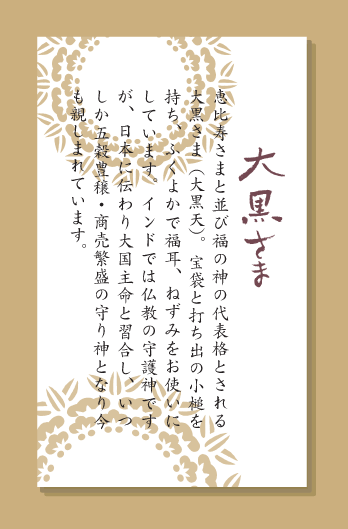 大黒さま
恵比寿さまと並び福の神の代表格とされる
大黒さま（大黒天）。宝袋と打ち出の小槌を
持ち、ふくよかで福耳、ねずみをお使いに
しています。インドでは仏教の守護神です
が、日本に伝わり大国主命と習合し、いつ
しか五穀豊穣・商売繁盛の守り神となり今
も親しまれています。